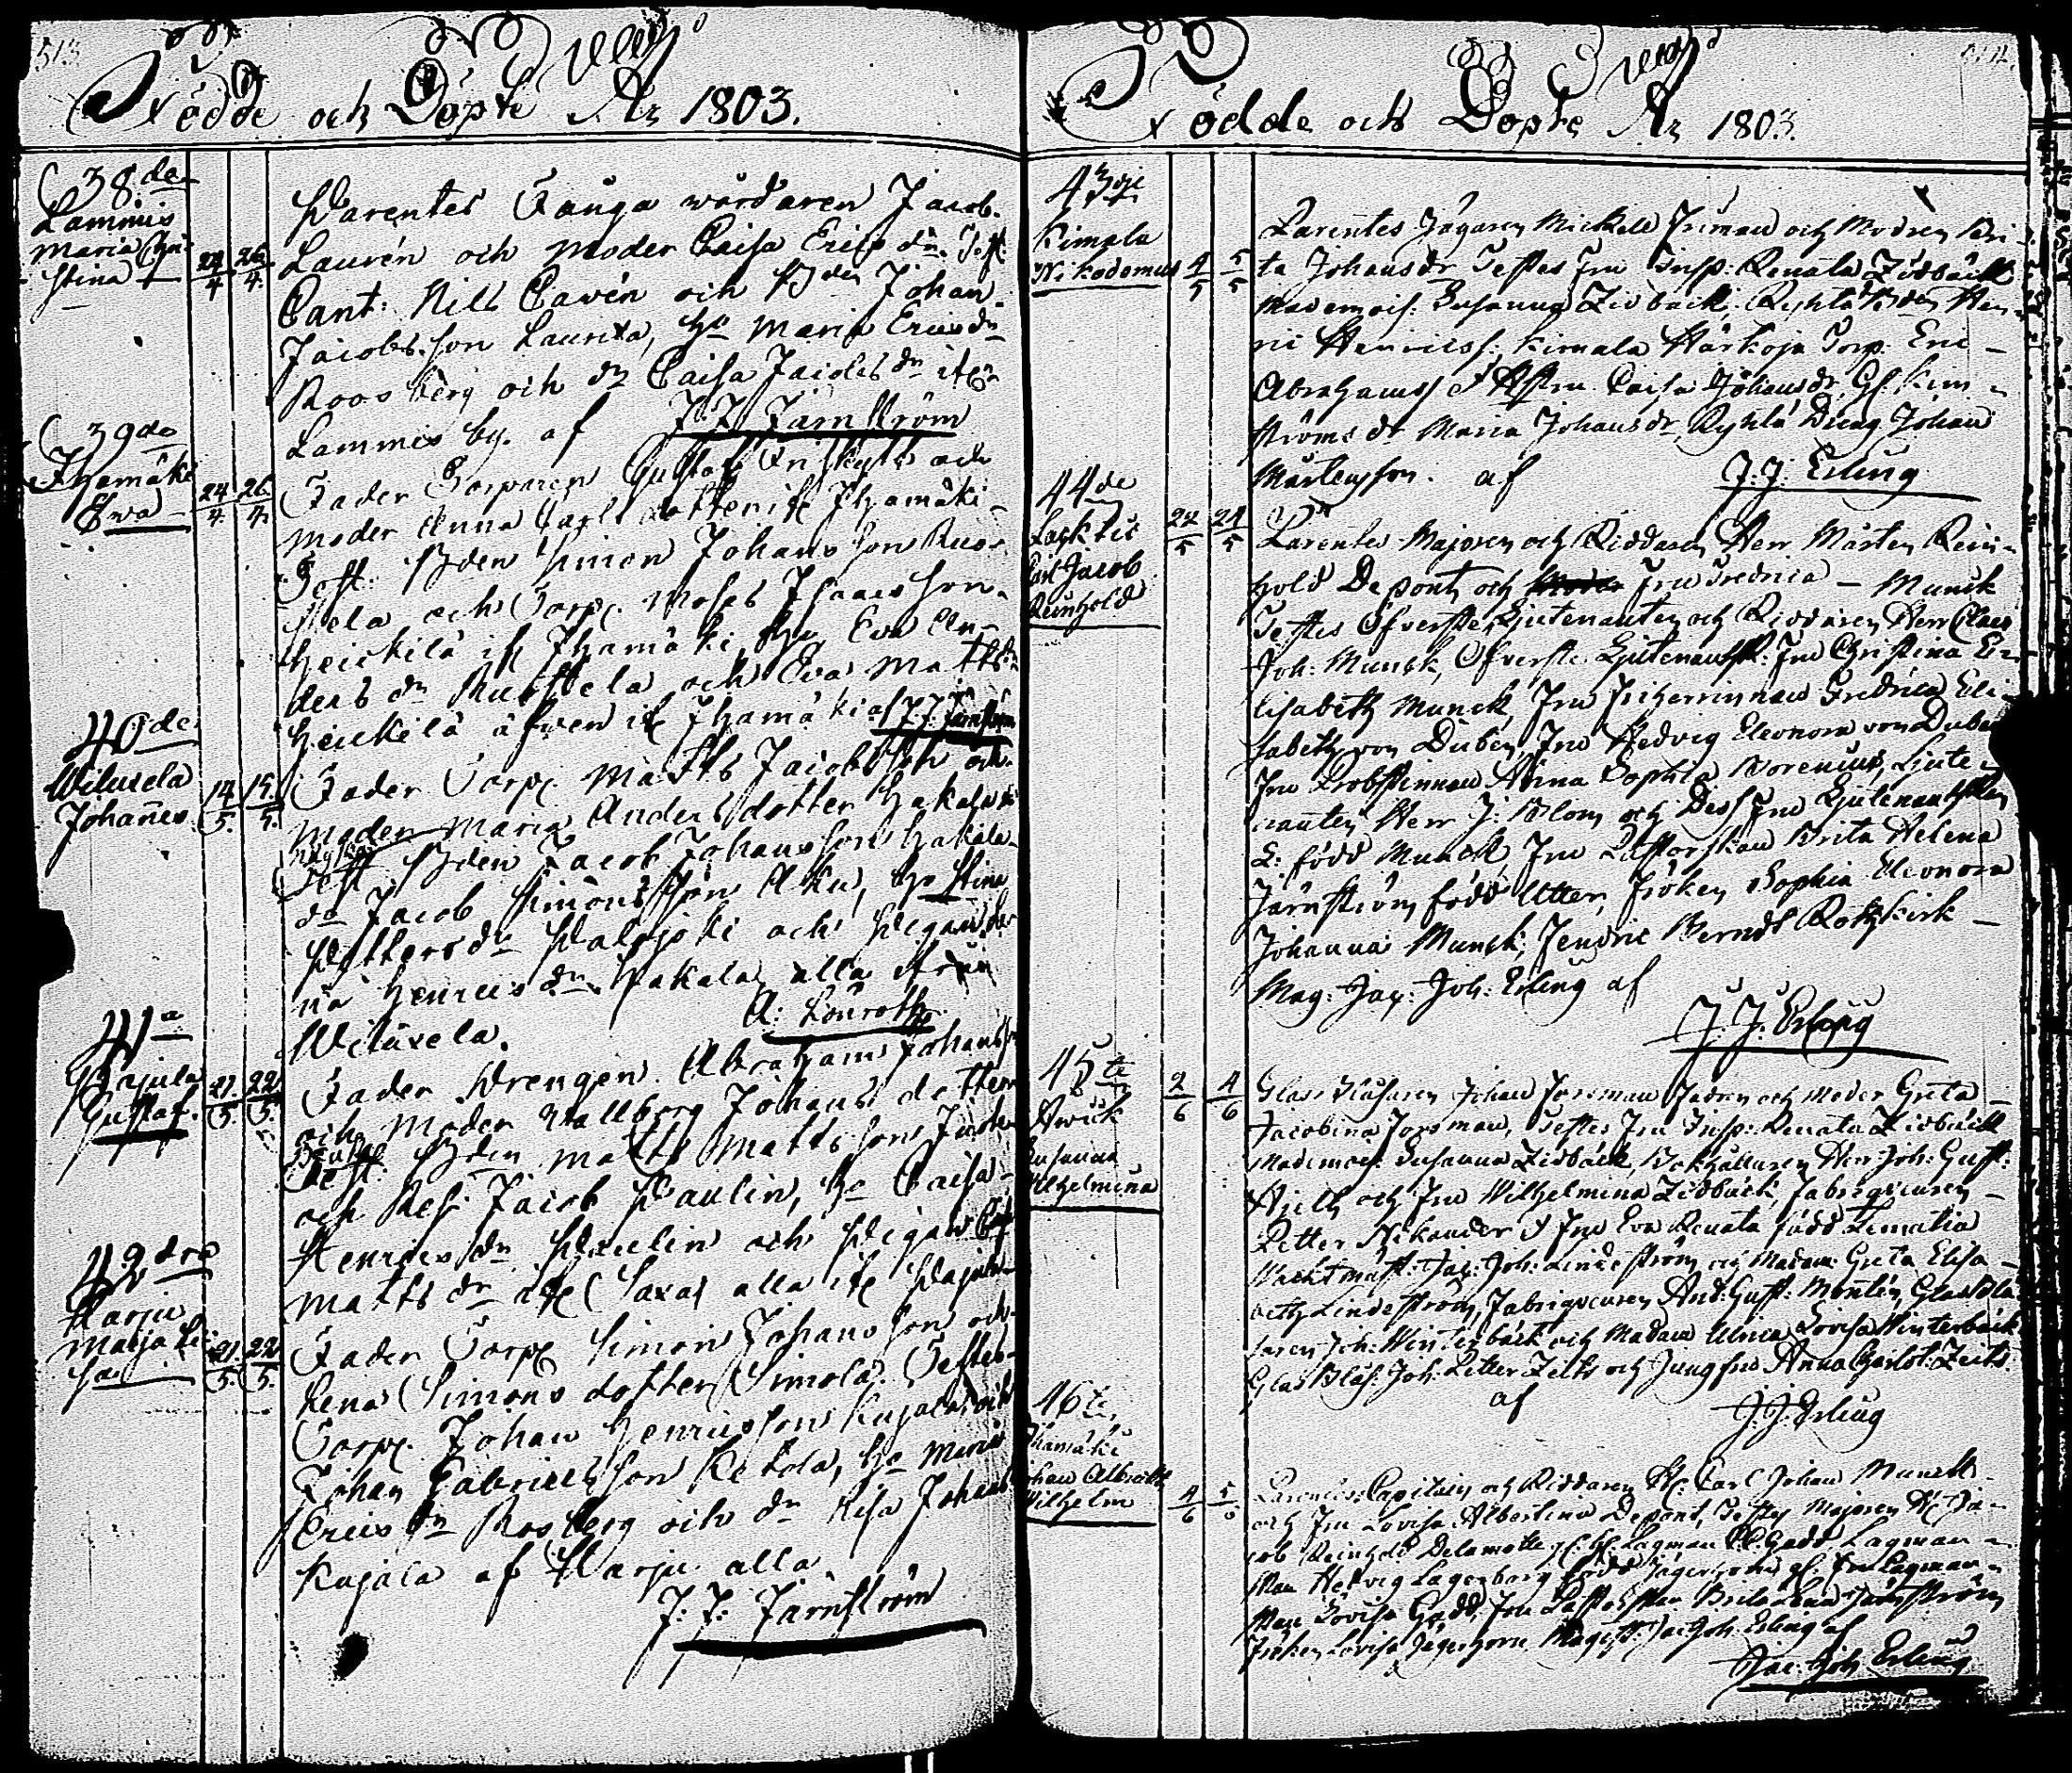 513
Födde och Döpte År 1803.
38de
Lammis
Maria Chri-
stina
24/4 26/4
Parentes Fånga wårdaren Jacob
Laurén och Moder Caisa Erics dr. Test:
Cant: Nils Cavén och Bden Johan
Jacobsson Laurila, Ho Maria Erics dr
Roosberg och dr Caisa Jacobs dr
Lammis by. af J.J. Järnström
39de
Ihamäki
Eva
24/4 26/4
Fader Torparen Gustaf och
Moder Anna Carls dotter Ihamäki
Test: Bden Simon Johansson
och Torp. Moses Isaacsson
Heickilä Ihamäki, Ho Eva An-
ders dr och Eva Matts dr
Heickilä äfven Ihamäki af J.J. Järnström
40de
Wiluxela
Johannes
14/5 15/5
Fader Torp. Matts Jacobsson och
Moder Maria Anders dotter Hakala
Test Bden Jacob Johansson Hakala
dr Jacob Simonsson Aku, Ho Stina
Petters dr Palojoki och Pigan
na Henrics dr Hakala, alla ifrån
Wiluxela.
A: Lönroth
41a
Pajula
Gustaf.
21/5 22/5
Fader Drengen Abraham Johansson
och Moder Wallborg Johans dotter
Test: Bden Matts Mattsson
och Jacob Paulin, Ho Caisa
Henrics dr Paulin och Pigan
Matts dr Saxa alla Pajula
42dra
Harju
Maria Li-
sa
21/5 22/5
Fader Torp. Simon Johansson och
Lena Simons dotter Simola. Testes
Torp. Johan Henricsson Kujala och
Johan Gabrielsson Ketola, Ho Maria
Erics dr Rosberg och dr Lisa Johans
Kujala af Harju alla
J: J: Järnström
Födde och Döpte År 1803.
43dje
Kimala
Nikodemus
4/5 5/5
Parentes Jägaren Mickel Friman och Modren Bri-
ta Johansdr Testes Fru Insp: Renata Zidbäck
Mademois: Susanna Zidbäck, Ryhtä Bden Hen-
ric Henricss: Kimala Härkoja Torp: Eric
Abrahamss & Hstru Caisa Johansdr, Gl. Kim-
ströms dr Maria Johansdr, Ryhtä Dreng Johan
Mårtensson. af J: J: Erling
44de
Carl Jacob
Reinhold
24/5 24/5
Parentes Majoren och Riddaren Herr Mårten Rein-
hold Depont och Fru Fredrica — Munck
Testes Öfverste Ljutenanten och Riddaren Herr Claes
Joh: Munck, Öfverste Ljutenantsk: Fru Christina E-
lisabeth Munck, Fru Friherrinnan Fredrica Eli-
sabeth von Düben, Fru Hedvig Eleonora von Düben
Fru Probstinnan Anna Sophia Borenius, Ljute-
nanten Herr J: Blom och Dess Fru Ljutenantskan
E: född Munck, Fru Pastorskan Brita Helena
Järnström född Utter, Fröken Sophia Eleonora
Johanna Munck, Fendric Berndt Rotkirk —
Mag: Jac: Joh: Erling af
J. J. Erling
45te
Awik
Susanna
Wilhelmina
2/6 4/6
Glas Blåsaren Johan Forsman Fadren och Moder Greta
Jacobina Forsman, Testes Fru Insp: Renata Zidbäck
Mademois: Susanna Zidbäck, Bokhållaren Herr Joh: Gust:
och Fru Wilhelmina Zidbäck, Fabriqueuren
Petter Nikander & Fru Eva Renata född
Wachtmäst: Jac: Joh: Lindeström och Madam Greta Elisa-
beth Lindeström, Fabriqueuren And: Gust: Montin, Glas Blå-
saren Joh: Winterbäck och Madam Ulrica Lovisa Winterbäck
Glas Blås: Joh: Petter Zeits och Jungfru Anna Charlot: Zeits
af J: J: Erling
46te
Ihamäki
Johan Albrecht
Wilhelm
4/6 5/6
Parentes: Capitain och Riddaren H: Carl Johan Munck
och Fru Lovisa Albertina Depont, Testes Majoren H: Ja-
cob Reinhold Delamotte, Lagman Gadd Lagman-
skan Hedvig Lagerborg född Jägerhorn, Fru Lagman-
skan Lovisa Gadd, Fru Pastorskan Brita Lena Järnström
Fröken Lovisa Jägerhorn Magist: Jac: Joh: Erling af
Jac: Joh: Erling